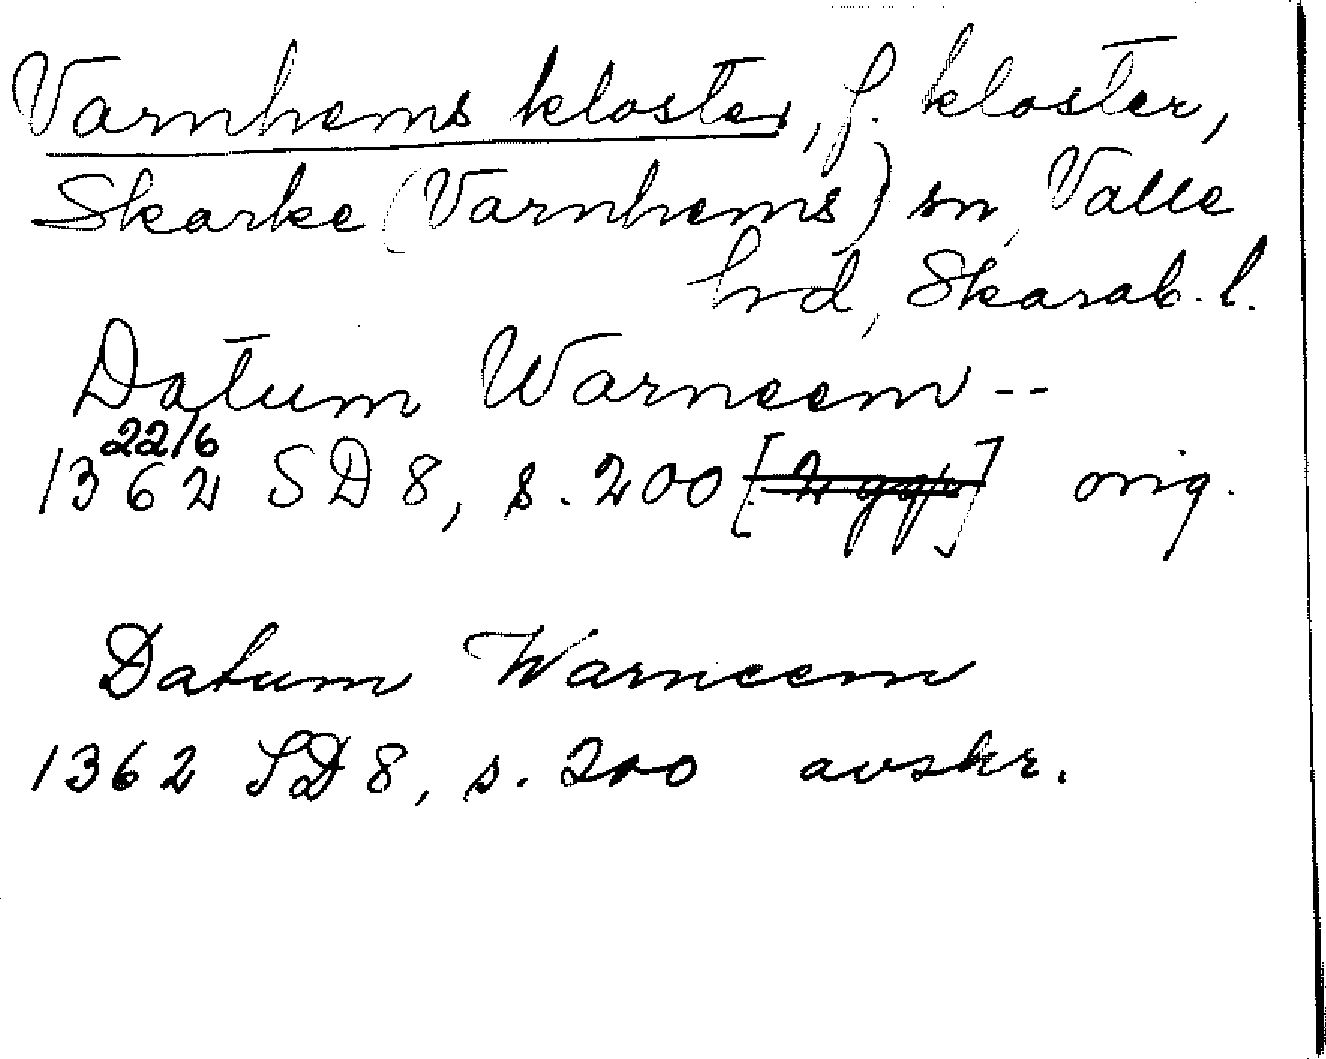 Varnhems kloster, f. kloster,
Skarke (Varnhems) sn, Valle
hd, Skarab. l.
Datum Warneem--
22/6
1362 SD 8, s. 200 [2 ggr] orig.
Datum Warneem
1362 SD 8, s. 200 avskr.